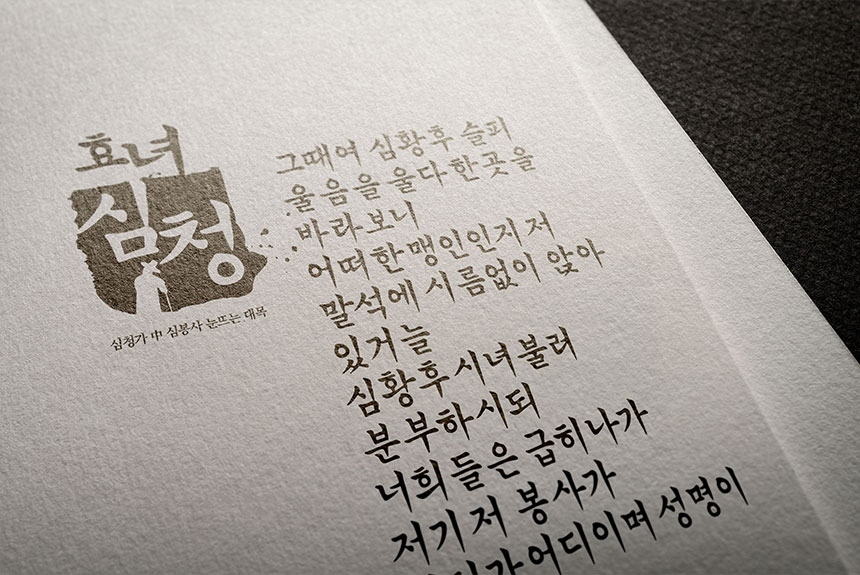 효녀
심청
심청가 中 심봉사 눈뜨는 대목
그때여 심황후 슬피
울음을 울다 한곳을
바라보니
어떠한 맹인인지 저
말석에 시름없이 앉아
있거늘
심황후 시녀 불러
분부하시되
너희들은 급히나가
저기 저 봉사가
어디이며 성명이